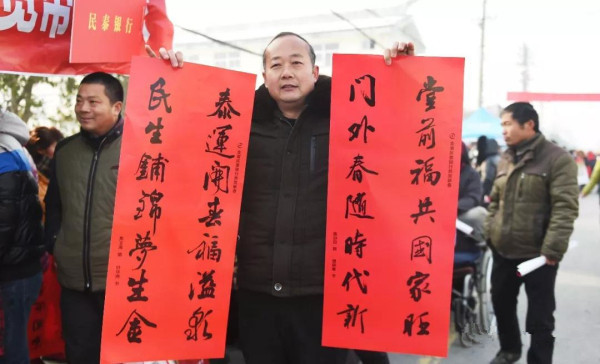 民泰银行
堂前福共國家旺
门外春隨時代新
泰運開春福溢彩
民生鋪錦夢生金